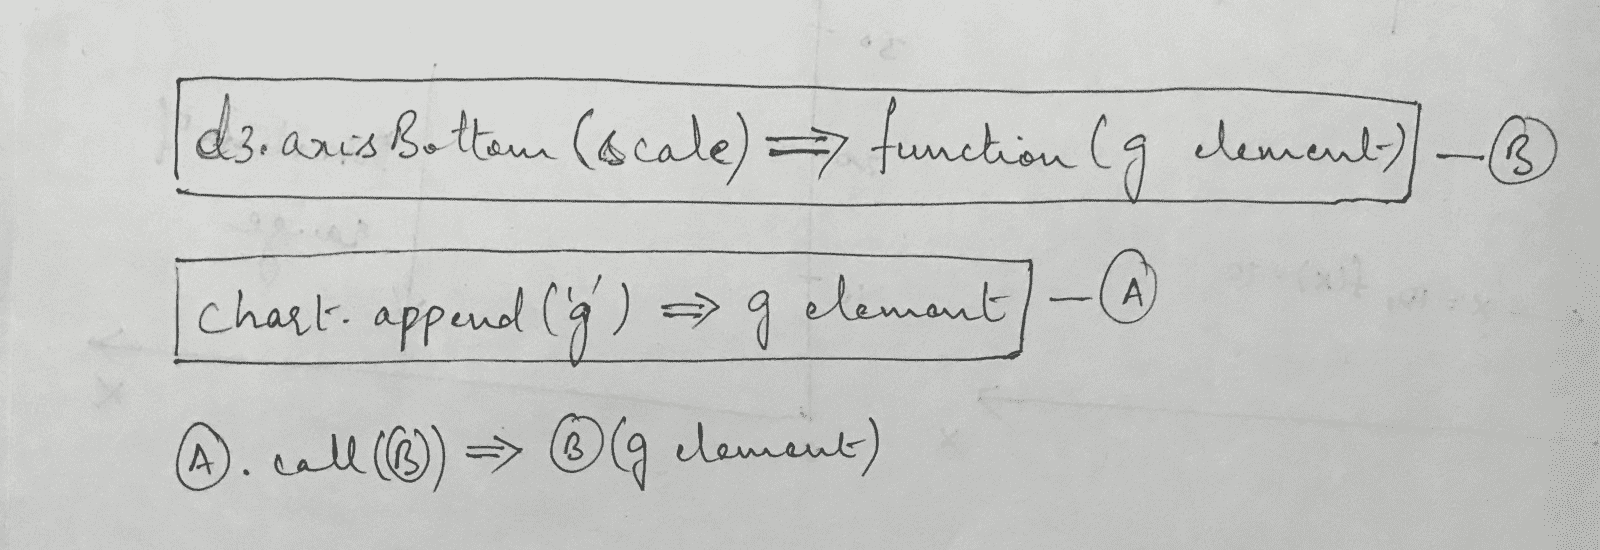 d3.axisBottom (scale) ⇒ function (g element) — Ⓑ
chart. append ('g') ⇒ g element — Ⓐ
Ⓐ. call(Ⓑ) ⇒ Ⓑ(g element)